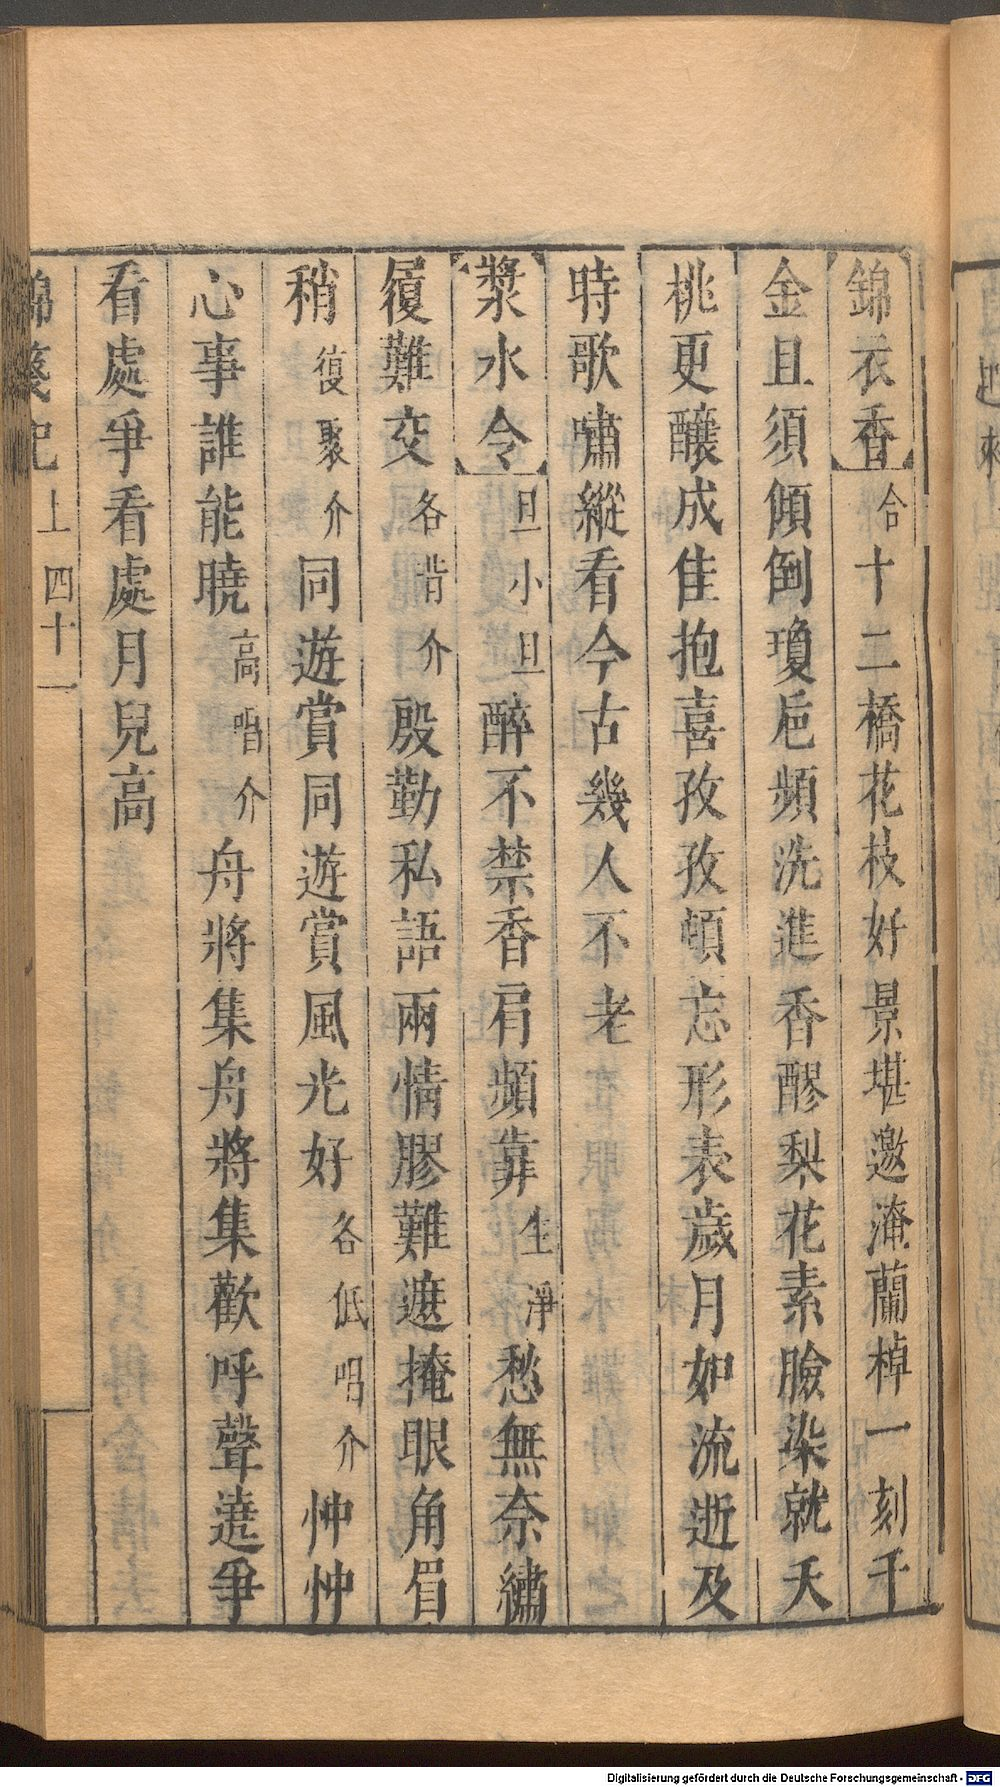 錦衣香合十二橋花枝好景堪邀淹蘭棹一刻千
金且須傾倒瓊巵頻洗進香醪梨花素臉染就夭
桃更釀成佳抱喜孜孜頓忘形表歲月如流逝及
時歌嘯縱看今古幾人不老
漿水令旦小旦醉不禁香肩頻靠生淨愁無奈繡
履難交各背介殷勤私語兩情膠難遮掩眼角眉
稍復聚介同遊賞同遊賞風光好各低唱介忡忡
心事誰能曉高唱介舟將集舟將集歡呼聲遶爭
看處爭看處月兒高
錦箋記 上 四十一
Digitalisierung gefördert durch die Deutsche Forschungsgemeinschaft - DFG